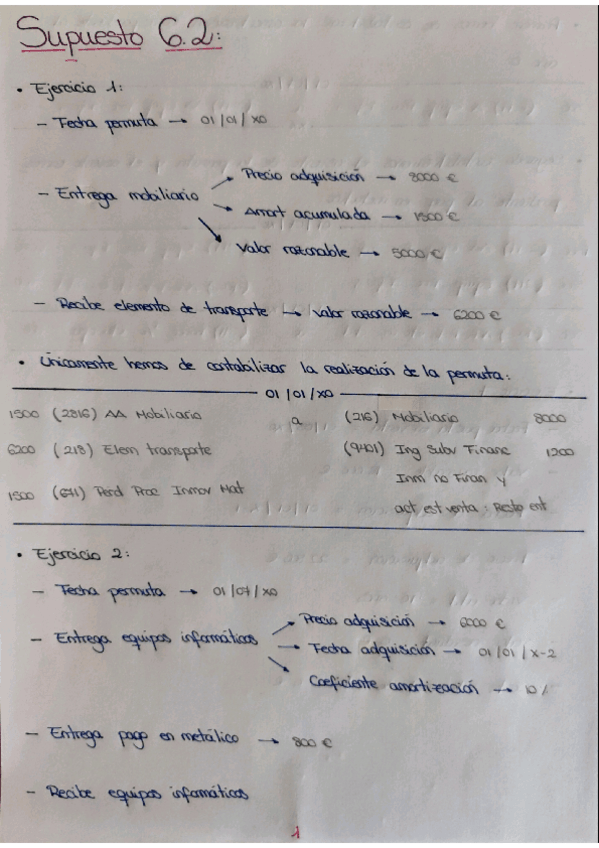 Supuesto 6.2:
• Ejercicio 1:
– Fecha permuta → 01/01/X0
– Entrega mobiliario → Precio adquisición → 8000 €
→ Amort acumulada → 1500 €
→ Valor razonable → 5000 €
– Recibe elemento de transporte → Valor razonable → 6200 €
• Únicamente hemos de contabilizar la realización de la permuta:
01/01/X0
1500 (2816) AA Mobiliario a (216) Mobiliario 8000
6200 (218) Elem transporte (9401) Ing Subv Financ 1200
Inm no Finan y
1500 (671) Perd Proc Inmov Mat
act est venta: Resto ent
• Ejercicio 2:
– Fecha permuta → 01/07/X0
– Entrega equipos informáticos → Precio adquisición → 6000 €
→ Fecha adquisición → 01/01/X-2
→ Coeficiente amortización → 10%
– Entrega pago en metálico → 800 €
– Recibe equipos informáticos
1